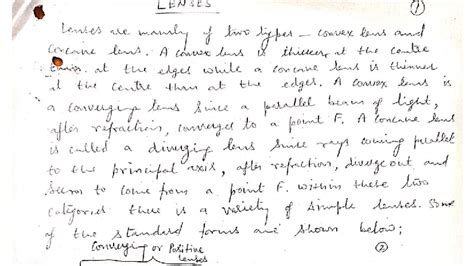 LENSES
①
Lenses are mainly of two types – convex lens and
concave lens. A convex lens is thicker at the centre
than at the edges while a concave lens is thinner
at the centre than at the edges. A convex lens is
a converging lens since a parallel beam of light,
after refraction, converges to a point F. A concave lens
is called a diverging lens since rays coming parallel
to the principal axis, after refraction, diverge out and
seem to come from a point F. within these two
categories there is a variety of simple lenses. Some
of the standard forms are shown below;
Converging or Positive
lenses
②